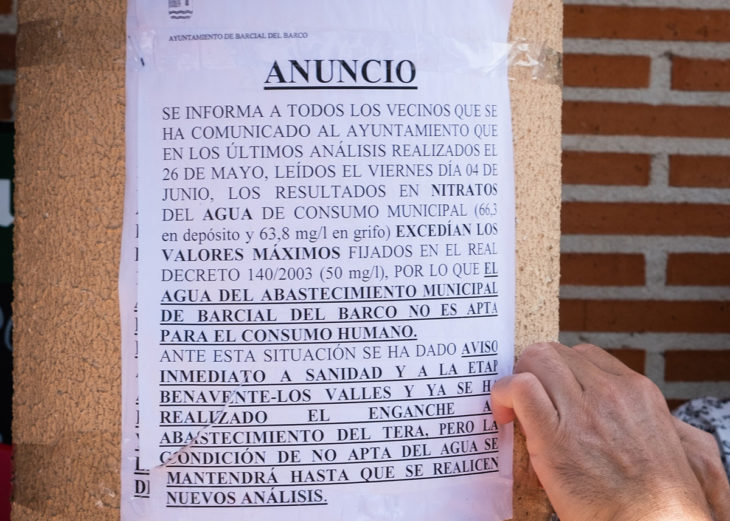 AYUNTAMIENTO DE BARCIAL DEL BARCO
ANUNCIO
SE INFORMA A TODOS LOS VECINOS QUE SE
HA COMUNICADO AL AYUNTAMIENTO QUE
EN LOS ÚLTIMOS ANÁLISIS REALIZADOS EL
26 DE MAYO, LEÍDOS EL VIERNES DÍA 04 DE
JUNIO, LOS RESULTADOS EN NITRATOS
DEL AGUA DE CONSUMO MUNICIPAL (66,3
en depósito y 63,8 mg/l en grifo) EXCEDÍAN LOS
VALORES MÁXIMOS FIJADOS EN EL REAL
DECRETO 140/2003 (50 mg/l), POR LO QUE EL
AGUA DEL ABASTECIMIENTO MUNICIPAL
DE BARCIAL DEL BARCO NO ES APTA
PARA EL CONSUMO HUMANO.
ANTE ESTA SITUACIÓN SE HA DADO AVISO
INMEDIATO A SANIDAD Y A LA ETAP
BENAVENTE-LOS VALLES Y YA SE HA
REALIZADO EL ENGANCHE A
ABASTECIMIENTO DEL TERA, PERO LA
CONDICIÓN DE NO APTA DEL AGUA SE
MANTENDRÁ HASTA QUE SE REALICEN
NUEVOS ANÁLISIS.